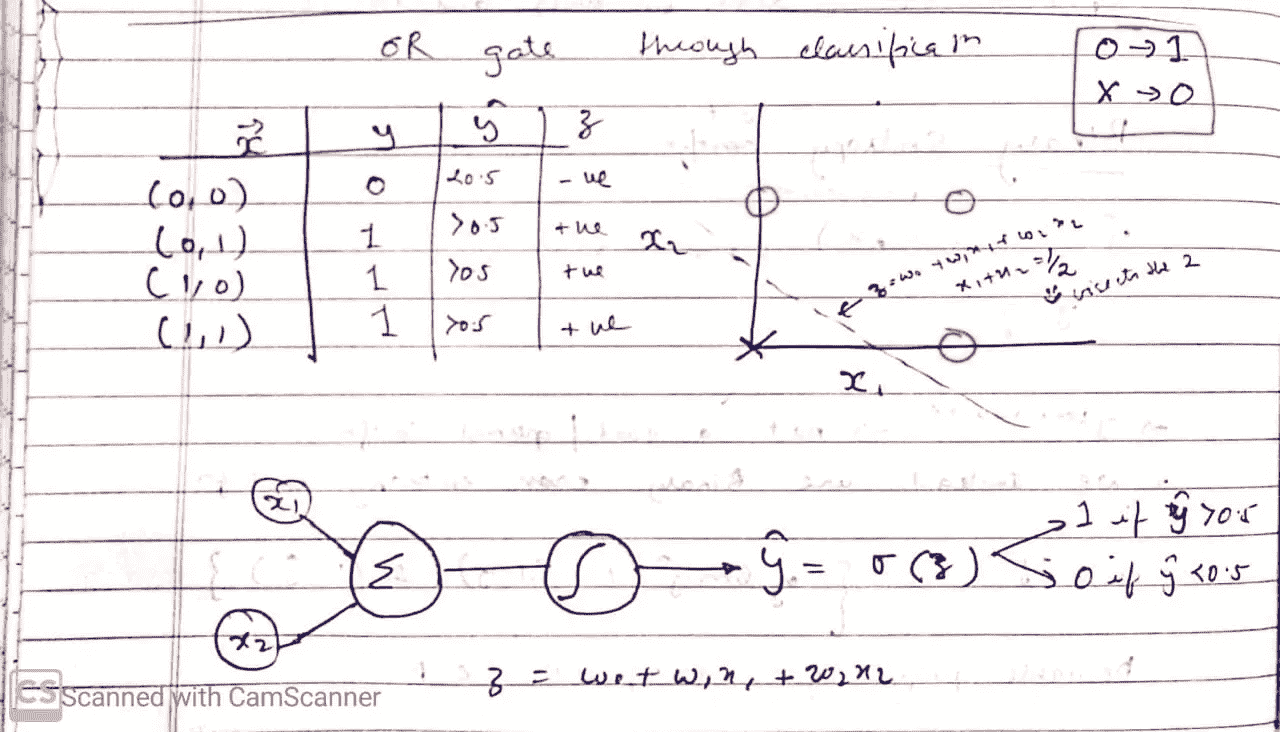 OR gate through classificatn
O → 1
X → 0
x⃗ | y | ŷ | z
(0, 0) | 0 | <0.5 | -ve
(0, 1) | 1 | >0.5 | +ve
(1, 0) | 1 | >0.5 | +ve
(1, 1) | 1 | >0.5 | +ve
x₂
z = w₀ + w₁x₁ + w₂x₂
x₁ + x₂ = 1/2
2
x₁
x₁
Σ ∫ ŷ = σ(z)
1 if ŷ > 0.5
0 if ŷ < 0.5
x₂
z = w₀ + w₁x₁ + w₂x₂
CS Scanned with CamScanner